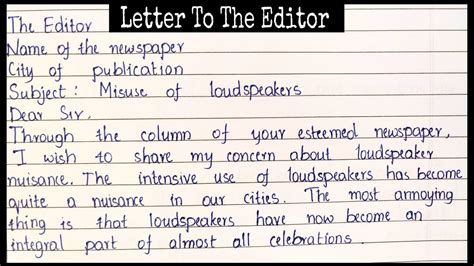 Letter To The Editor
The Editor
Name of the newspaper
City of publication
Subject : Misuse of loudspeakers
Dear Sir,
Through the column of your esteemed newspaper,
I wish to share my concern about loudspeaker
nuisance. The intensive use of loudspeakers has become
quite a nuisance in our cities. The most annoying
thing is that loudspeakers have now become an
integral part of almost all celebrations.